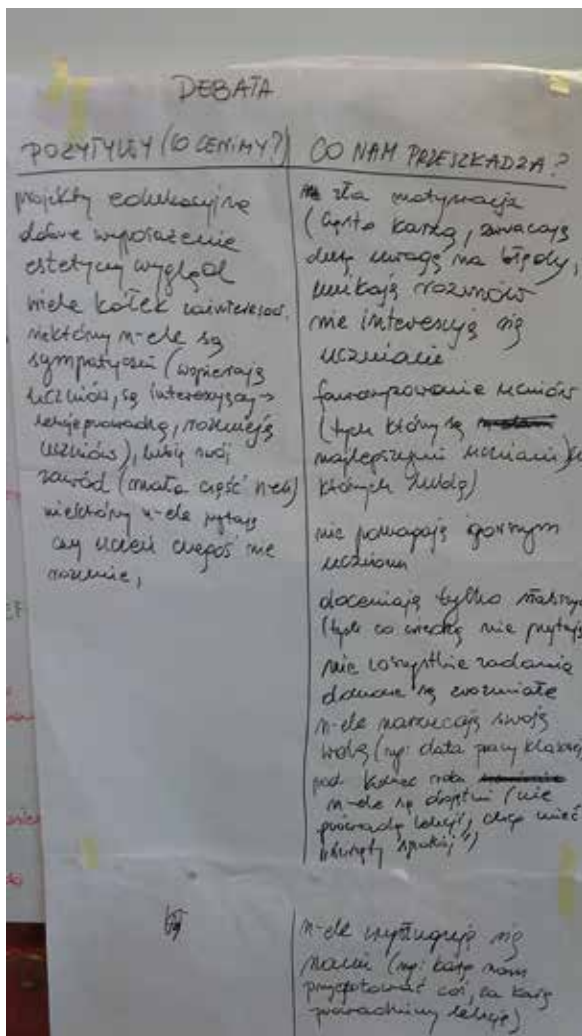 DEBATA
POZYTYWY (CO CENIMY?)
projekty edukacyjne
dobre wyposażenie
estetyczny wygląd
wiele kółek zainteresow.
niektórzy n-ele są
sympatyczni (wspierają
uczniów, są interesujący →
lekcje prowadzą, rozumieją
uczniów), lubią swój
zawód (mała część n-eli)
niektórzy n-ele pytają
czy uczeń czegoś nie
rozumie,
CO NAM PRZESZKADZA?
zła motywacja
(często karzą, zwracają
dużą uwagę na błędy,
unikają rozmów
nie interesują się
uczniami
faworyzowanie uczniów
(tych którzy są
najlepszymi uczniami)
których lubią)
nie pomagają gorszym
uczniom
doceniają tylko
(tych co wiedzą nie pytają
nie wszystkie zadania
domowe są zrozumiałe
n-ele narzucają swoją
wolę (np: data pracy klasowej
pod koniec roku
n-ele są obojętni (nie
prowadzą lekcji, chcą mieć
"święty spokój")
n-ele wysługują się
nami (np: każą nam
przygotować coś, za karę
prowadzimy lekcje)